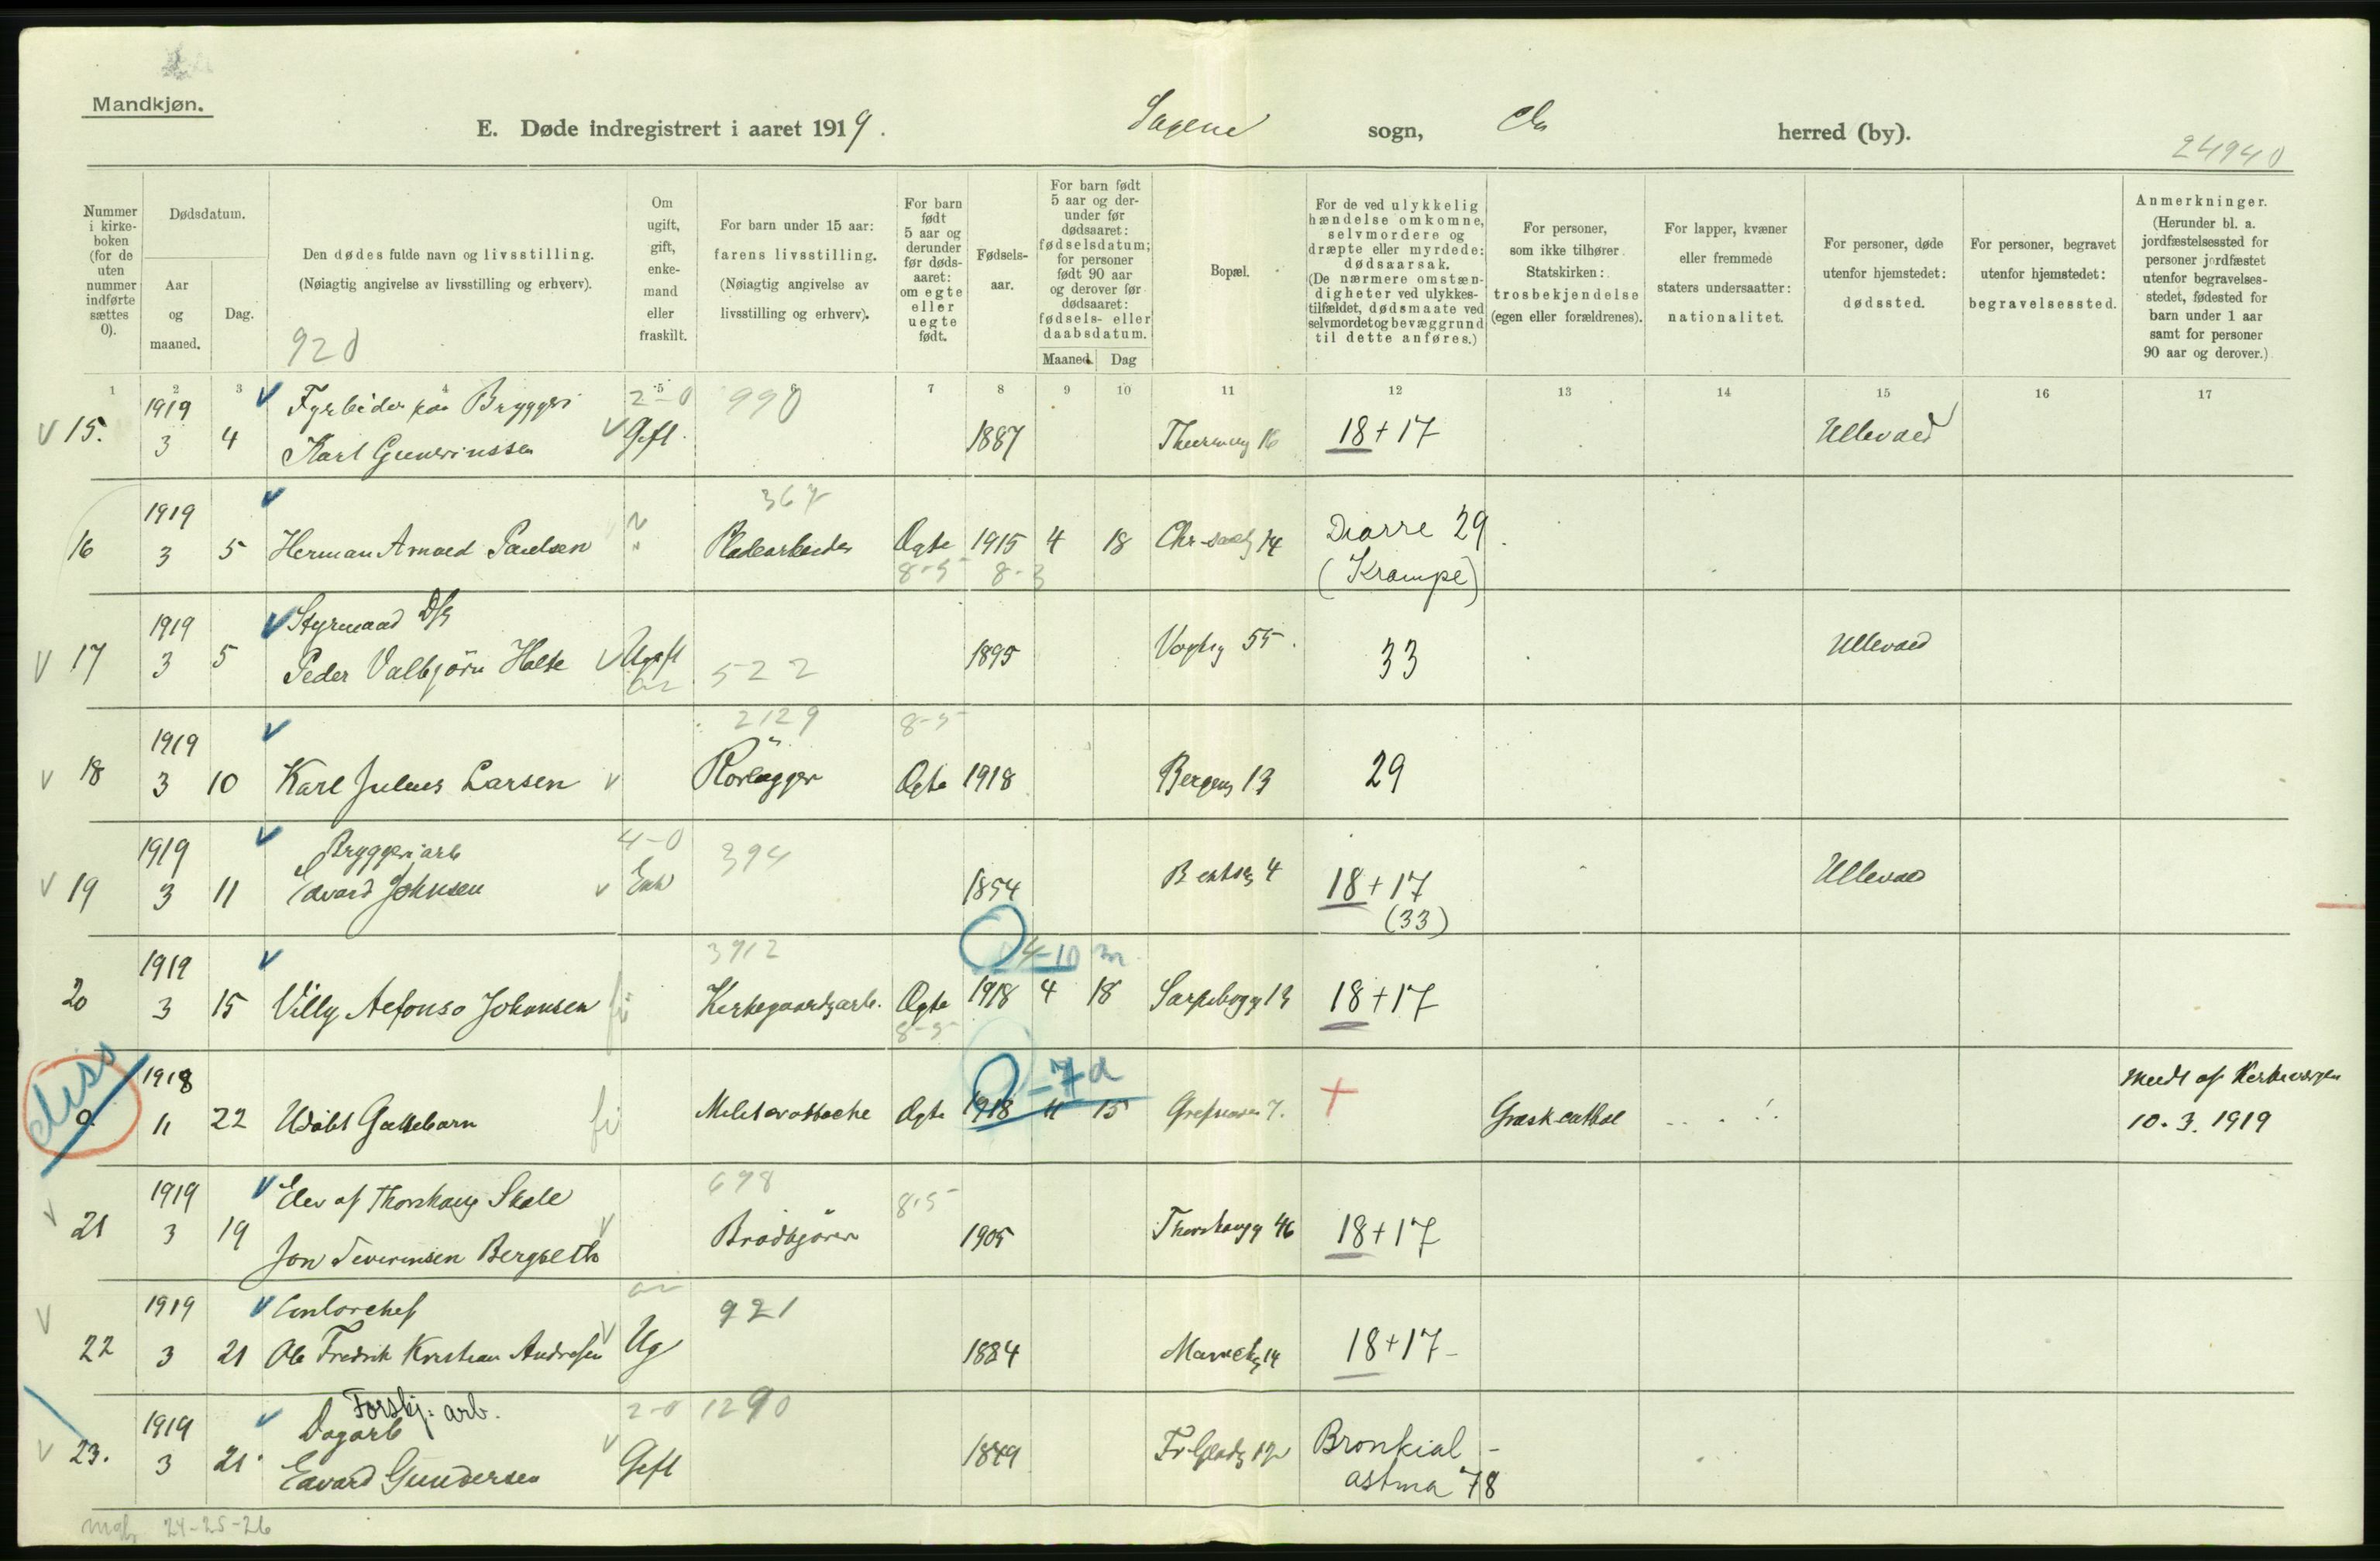 Mandkjøn.
E. Døde indregistrert i aaret 1919. Sagene sogn, Chr herred (by).
24940
Nummer i kirke-boken (for de uten nummer indførte sættes 0).
Dødsdatum.
Aar og maaned.
Dag.
Den dødes fulde navn og livsstilling.
(Nøiagtig angivelse av livsstilling og erhverv).
920
Om ugift, gift, enke-mand eller fraskilt.
For barn under 15 aar: farens livsstilling.
(Nøiagtig angivelse av livsstilling og erhverv).
For barn født 5 aar og derunder før døds-aaret: om egte eller uegte født.
Fødsels-aar.
For barn født 5 aar og der-under før dødsaaret: fødselsdatum; for personer født 90 aar og derover før dødsaaret: fødsels- eller daabsdatum.
Maaned. Dag
Bopæl.
For de ved ulykkelig hændelse omkomne, selvmordere og dræpte eller myrdede: dødsaarsak.
(De nærmere omstæn-digheter ved ulykkes-tilfældet, dødsmaate ved selvmordet og bevæggrund til dette anføres.)
For personer, som ikke tilhører Statskirken: trosbekjendelse (egen eller forældrenes).
For lapper, kvæner eller fremmede staters undersaatter: nationalitet.
For personer, døde utenfor hjemstedet: dødssted.
For personer, begravet utenfor hjemstedet: begravelsessted.
Anmerkninger.
(Herunder bl. a. jordfæstelsessted for personer jordfæstet utenfor begravelses-stedet, fødested for barn under 1 aar samt for personer 90 aar og derover.)
1 2 3 4 5 6 7 8 9 10 11 12 13 14 15 16 17
1919 Fyrbøder paa Bryggeri 2-0 990
15. 3 4 Karl Gunerinssen Gift 1887 16 18+17 Ullevaal
1919 367
16 3 5 Herman Arnold Paulsen Pladearbeider Egte 1915 4 18 14 Diarre 29
8-5 8-3 (Krampe)
1919 Styrmand D/S
17 3 5 Peder Valbjörn Halse Ugift 522 1895 Vogtsg 55. 33 Ullevaal
1919 2129 8-5
18 3 10 Karl Julius Larsen Rörlægger Egte 1918 Bergensg 13 29
1919 Bryggeriarb 4-0 394
19 3 11 Edvard Johnsen Enk 1854 Bentseg 4 18+17 Ullevaal
(33)
1919 3912 4-10 m
20 3 15 Villy Alfonso Johansen Kirkegaardsarb. Egte 1918 4 18 Sarpsborgg 13 18+17
8-5
diss 1918 -7 d meddt af Kirkevergen
0 11 22 Udöbt Guttebarn Militærattache Egte 1918 11 15 Grefsenvn 7. + Græsk cathol 10.3.1919
1919 Elev af Thorshaug Skole 698 8-5
21 3 19 Jon Severinsen Bergseth Brödkjörer 1905 Thorshaugg 46 18+17
1919 Contorchef 921
22 3 21 Ole Fredrik Kristian Andresen Ug 1884 14 18+17
1919 Forskj. arb. 2-0 1290
Dagarb
23. 3 21 Edvard Gundersen Gift 1849 Bronkial-
astma 78
24-25-26